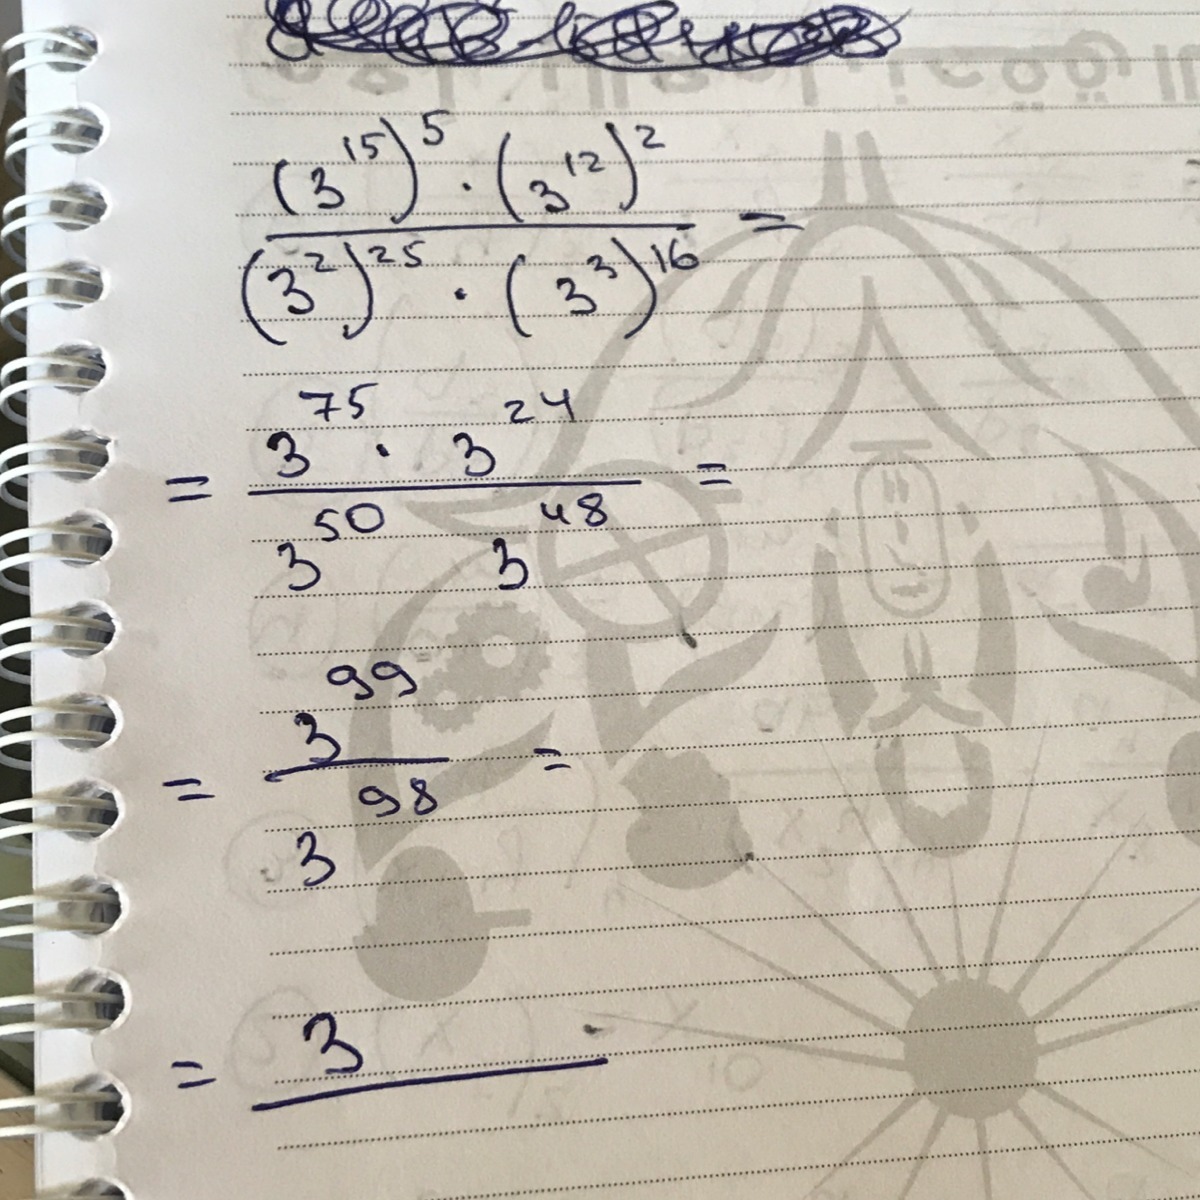 (3^15)^5 · (3^12)^2 =
(3^2)^25 · (3^3)^16
= 3^75 · 3^24 =
3^50 3^48
= 3^99 =
3^98
= 3